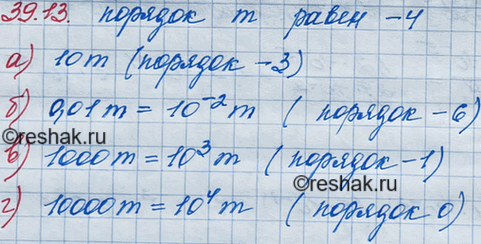 39.13. порядок m равен -4
а) 10m (порядок -3)
б) 0,01m = 10⁻²m ( порядок -6)
©reshak.ru
в) 1000m = 10³m (порядок -1)
©reshak.ru
г) 10000m = 10⁴m ( порядок 0)